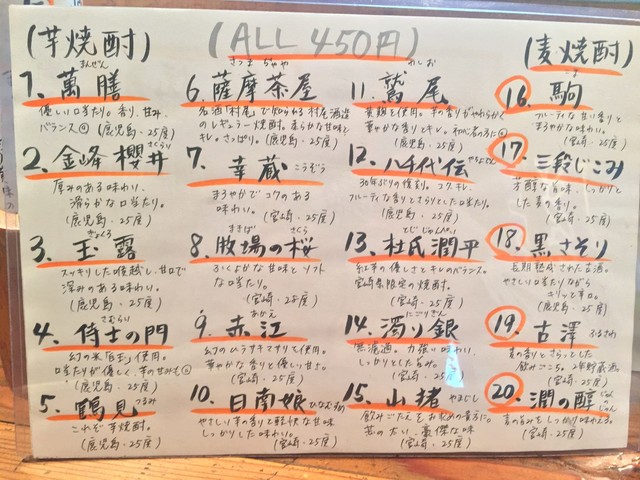 (芋焼酎)
(ALL 450円)
(麦焼酎)
1. 萬膳 まんぜん
優しい口当たり。香り、甘み、
バランス◎ (鹿児島・25度)
2. 金峰櫻井 さくらい
厚みのある味わい、
滑らかな口当たり。
(鹿児島・25度)
3. 玉露 ぎょくろ
スッキリした後越し、甘口で
深みのある味わい。
(鹿児島・25度)
4. 侍士の門 さむらい
使用。
口当たりが優しく、芋の甘みも◎
(鹿児島・25度)
5. 鶴見 つるみ
これぞ芋焼酎。
(鹿児島・25度)
6. 薩摩茶屋 さつま ぢゃや
名酒「村尾」で知られる村尾酒造
のレギュラー焼酎。柔らかな甘味と
キレ。さっぱり。(鹿児島・25度)
7. 幸蔵 こうぞう
まろやかでコクのある
味わい。
(宮崎・25度)
8. 牧場の桜 まきば さくら
ふくよかな甘味とソフト
な口当たり。
(宮崎・25度)
9. 赤江 あかえ
幻のムラサキマサリを使用。
華やかな香りと優しい甘さ。
(宮崎・25度)
10. 日南娘 ひなむすめ
やさしい芋の香りと軽快な甘味
しっかりした味わい。
(宮崎・25度)
11. 鷲尾 わしお
黄麹を使用。芋の香りがやわらかく
華やかな香りとキレ。初心者の方に◎
(鹿児島・25度)
12. 八千代伝 やちよでん
30年ぶりの復刻。コク、キレ、
フルーティな香りとさらりとした口当たり。
(鹿児島・25度)
13. 杜氏潤平 とじ じゅんぺい
紅芋の優しさとキレのバランス。
宮崎県限定の焼酎。
(宮崎・25度)
14. 濁り銀 にごりぎん
無濾過。力強い味わい、
しっかりとした旨み。
(宮崎・25度)
15. 山猪 やまじし
飲みごたえをお求めの貴方に。
芯の太い、豪傑な味
(宮崎・25度)
16. 駒 こま
フルーティな甘い香りと
まろやかな味わい。
(宮崎・25度)
17. 三段じこみ
芳醇な旨味、しっかりと
した麦の香り。
(宮崎・25度)
18. 黒さそり
長期熟成された古酒。
やさしい口当たりながら
キリッと辛口。
(宮崎・25度)
19. 古澤 ふるさわ
麦の香りとさらっとした
飲みごこち。2年貯蔵酒。
(宮崎・25度)
20. 潤の醇 じゅんのじゅん
麦の旨みをしっかり味わえる。
(宮崎・25度)